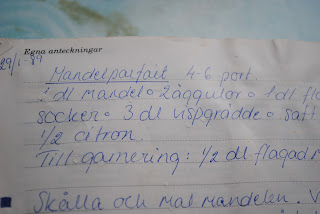 Egna anteckningar
29/1-89
Mandelparfait 4-6 port.
2 dl mandel ∘ 2 äggulor ∘ 1 dl
socker ∘ 3 dl vispgrädde ∘ saft
1/2 citron.
Till garnering: 1/2 dl flagad
Skålla och mal mandeln.